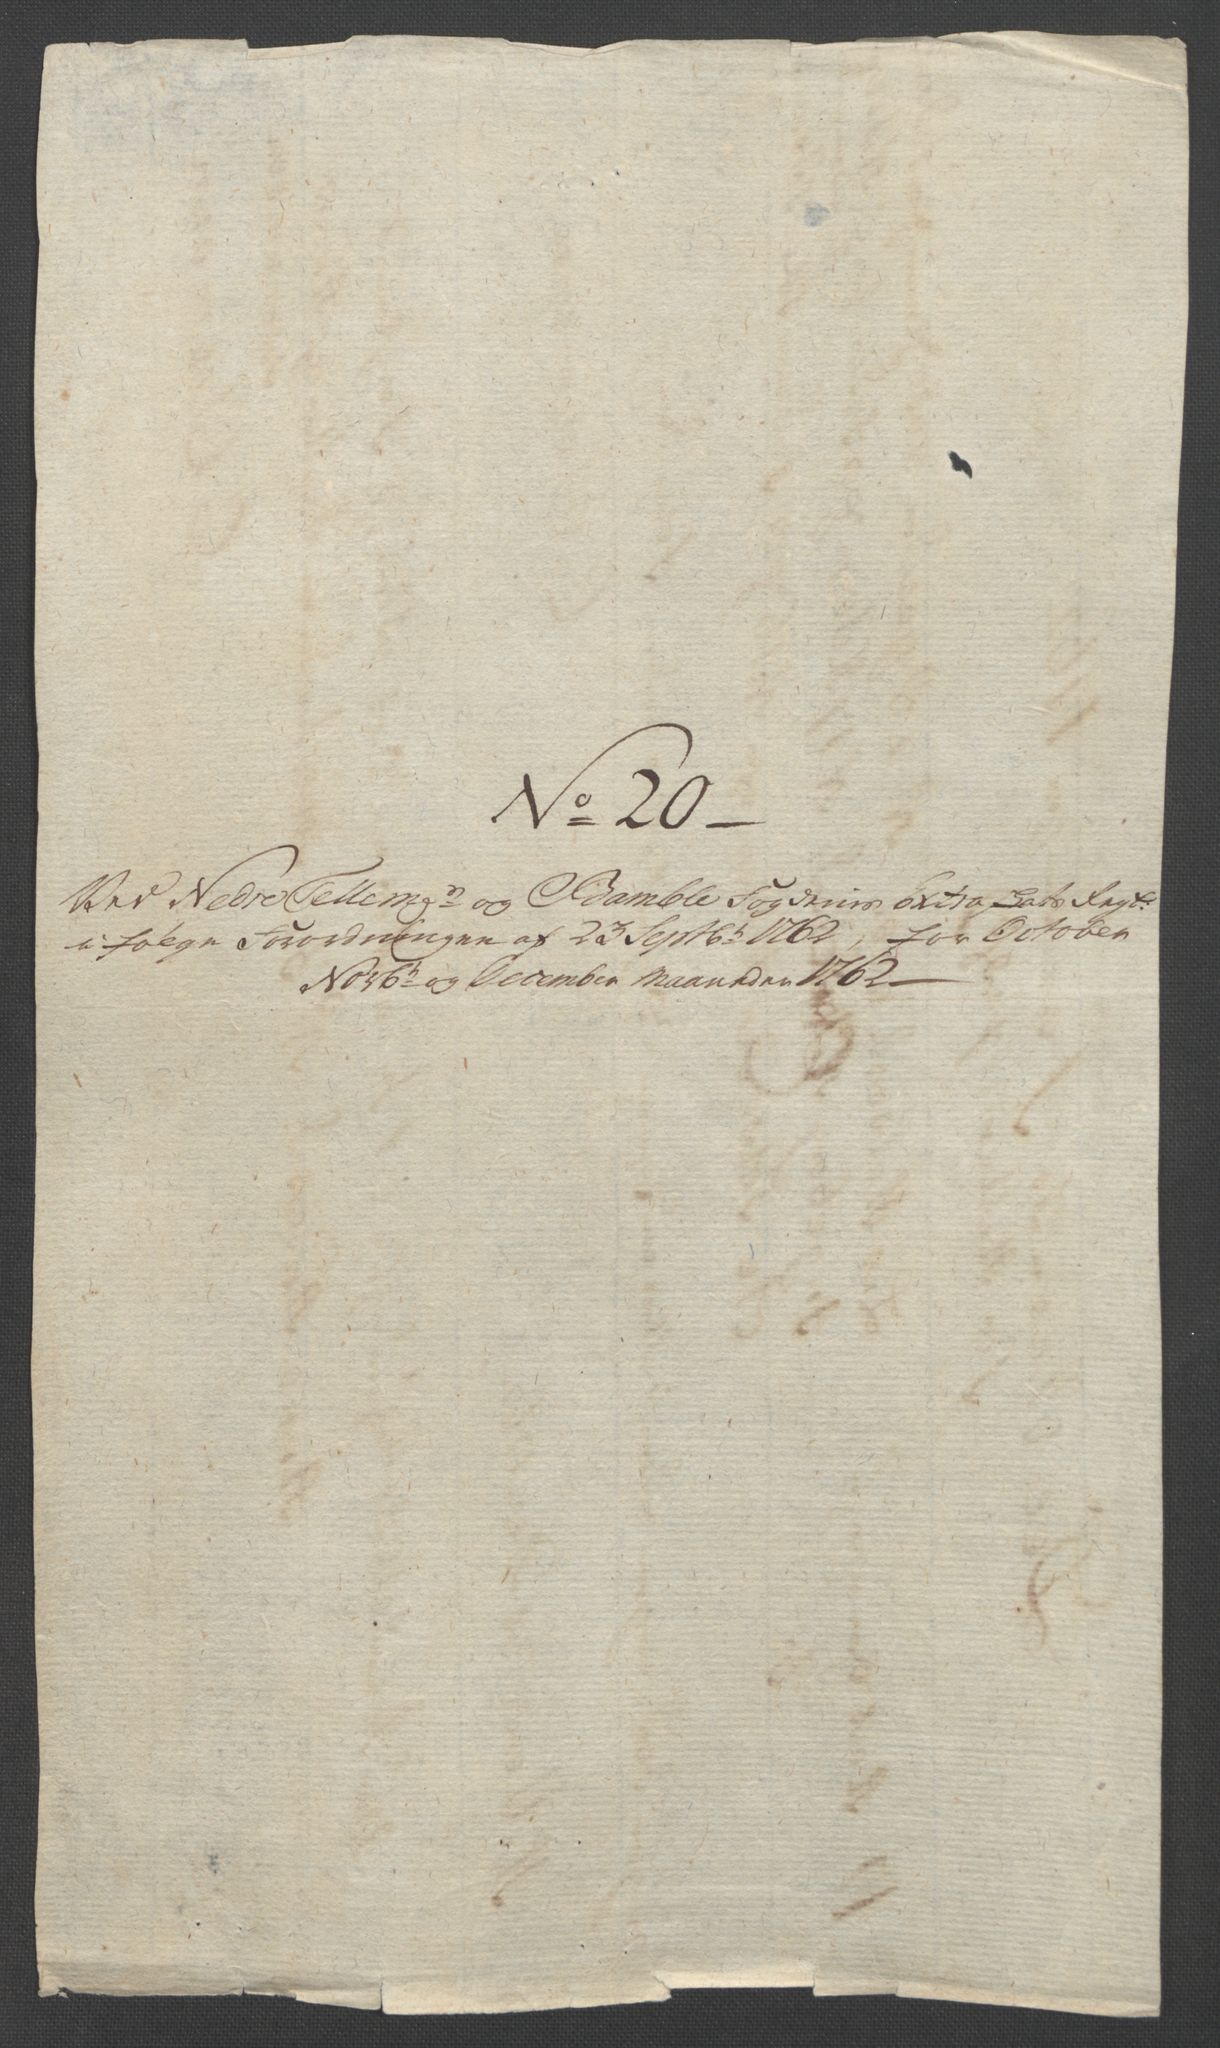 No 20
Ved Nedre Tellemn og Bamble Fogderies Extra Skatts Regt:
i følge Forordningen af 23 Septbr 1762, for October
Novbr og December Maaneder 1762